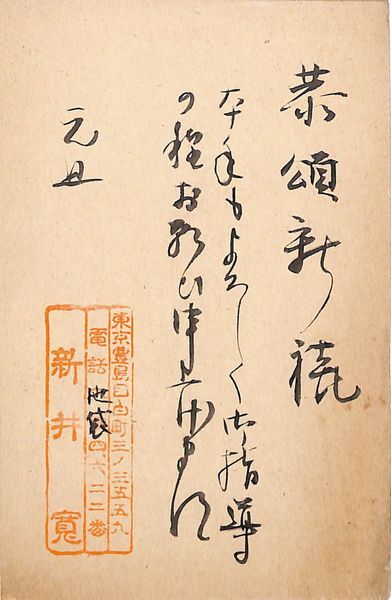 恭頌新禧
本年もよろしく御指導
の程お願ひ申上げます
元旦
東京豊島目白町三ノ三五五九
電話池袋四、六二二番
新井寛